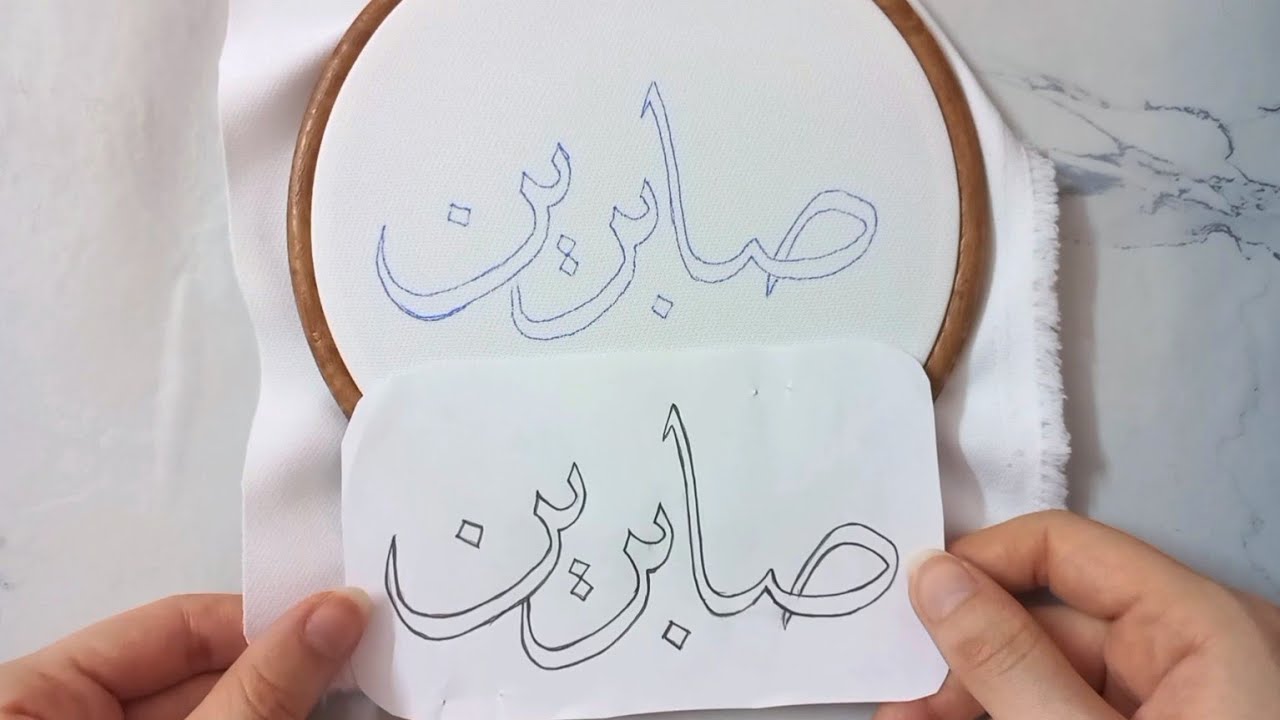 صابرين
صابرين